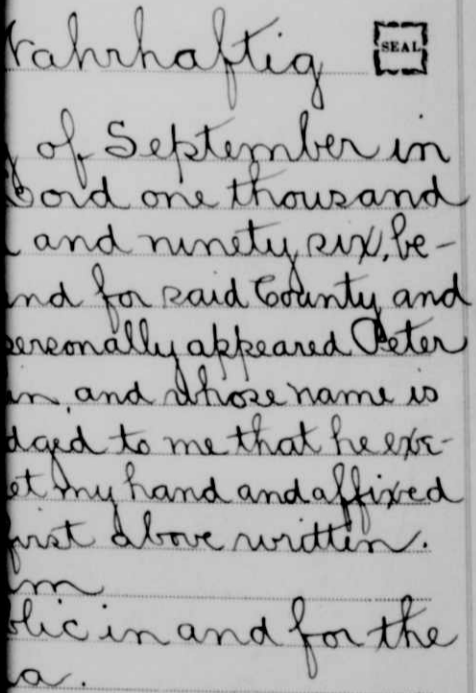 Wahrhaftig SEAL
of September in
Lord one thousand
and ninety six, be-
nd for said County and
personally appeared Peter
in, and whose name is
dged to me that he exe-
et my hand and affixed
first above written.
m
blic in and for the
a.